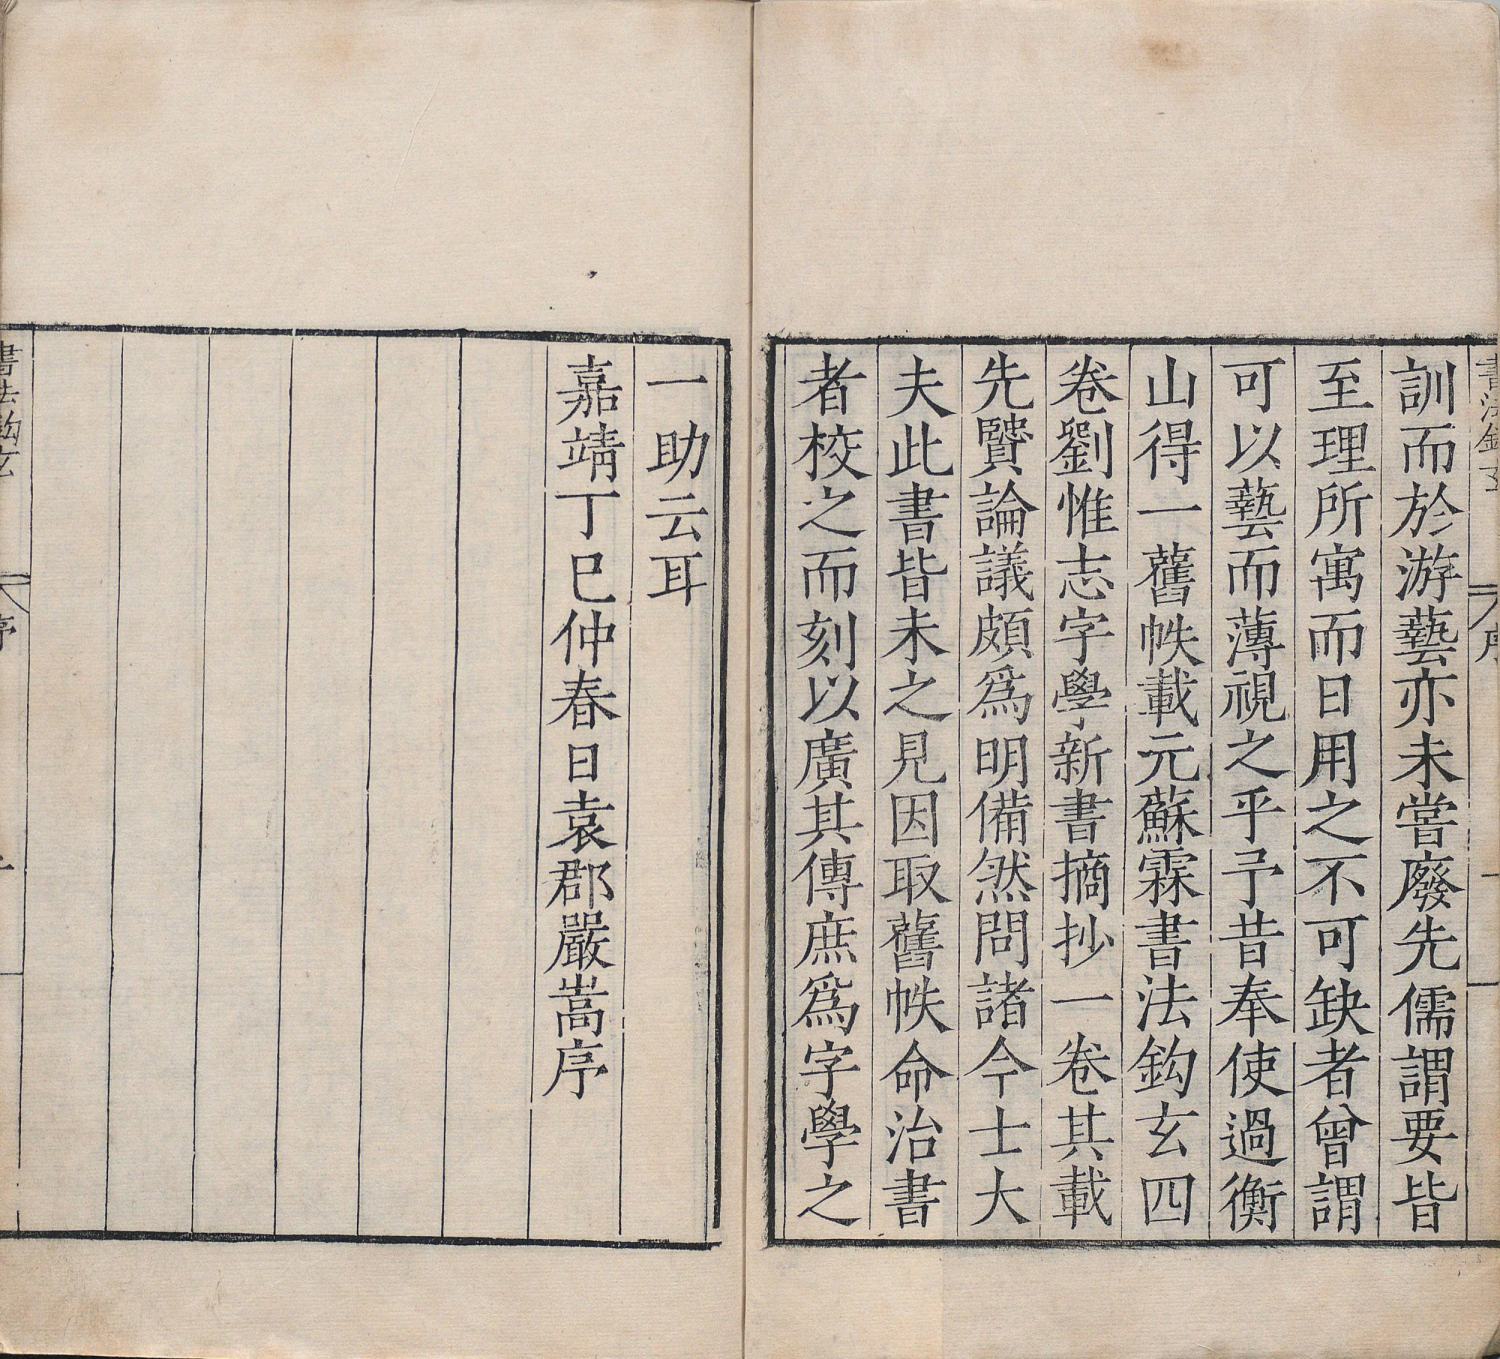 書法鈎玄 序
訓而於游藝亦未嘗廢先儒謂要皆
至理所寓而日用之不可缺者曾謂
可以藝而薄視之乎予昔奉使過衡
山得一舊帙載元蘇霖書法鈎玄四
卷劉惟志字學新書摘抄一卷其載
先賢論議頗爲明備然問諸今士大
夫此書皆未之見因取舊帙命治書
者校之而刻以廣其傳庶爲字學之
一助云耳
嘉靖丁巳仲春日袁郡嚴嵩序
書法鈎玄 序